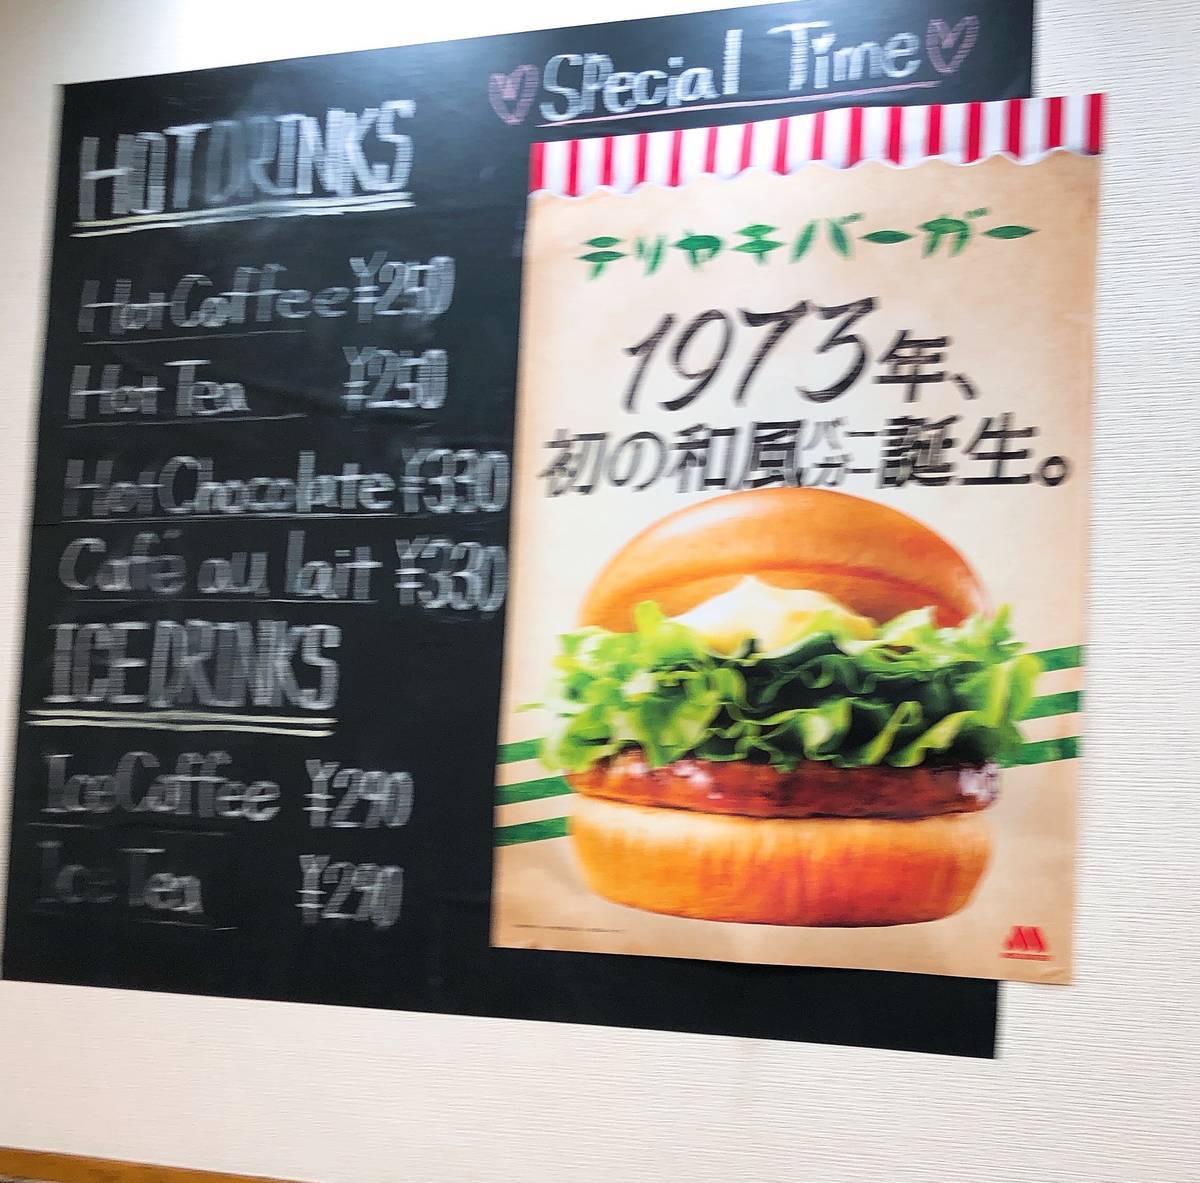 Special Time
HOT DRINKS
Hot Coffee ¥250
Hot Tea ¥250
Hot Chocolate ¥330
Café au lait ¥330
ICE DRINKS
Ice Coffee ¥290
Ice Tea ¥290
テリヤキバーガー
1973年、
初の和風バーガー誕生。